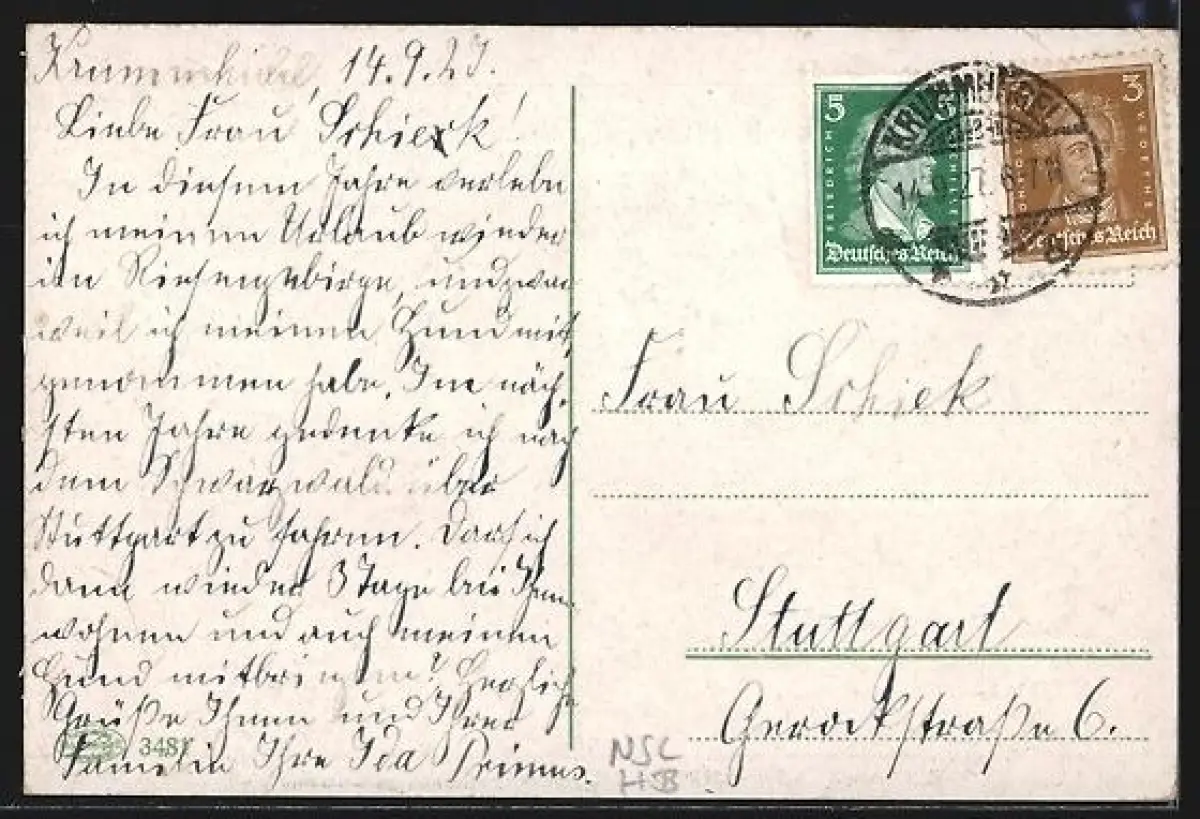 Krummhübel, 14.9.27.
Liebe Frau Schieck!
In diesem Jahre verlebe
ich meinen Urlaub wieder
im Riesengebirge, und zwar
weil ich meinen Hund mit,
genommen habe. Im näch,
sten Jahre gedenke ich nach
dem Schwarzwald über
Stuttgart zu fahren. Darf ich
dann wieder 3 Tage bei Ihnen
wohnen und auch meinen
Hund mitbringen? Herzliche
Grüße Ihnen und Ihrer
Familie Ihre Ida Primus.
3481
5 5
FRIEDRICH
Deutsches Reich
3
Deutsches Reich
KRUMMHÜBEL
14.9.27. 6-7N
Frau Schiek
Stuttgart
Gerockstraße 6.
NSC
HB